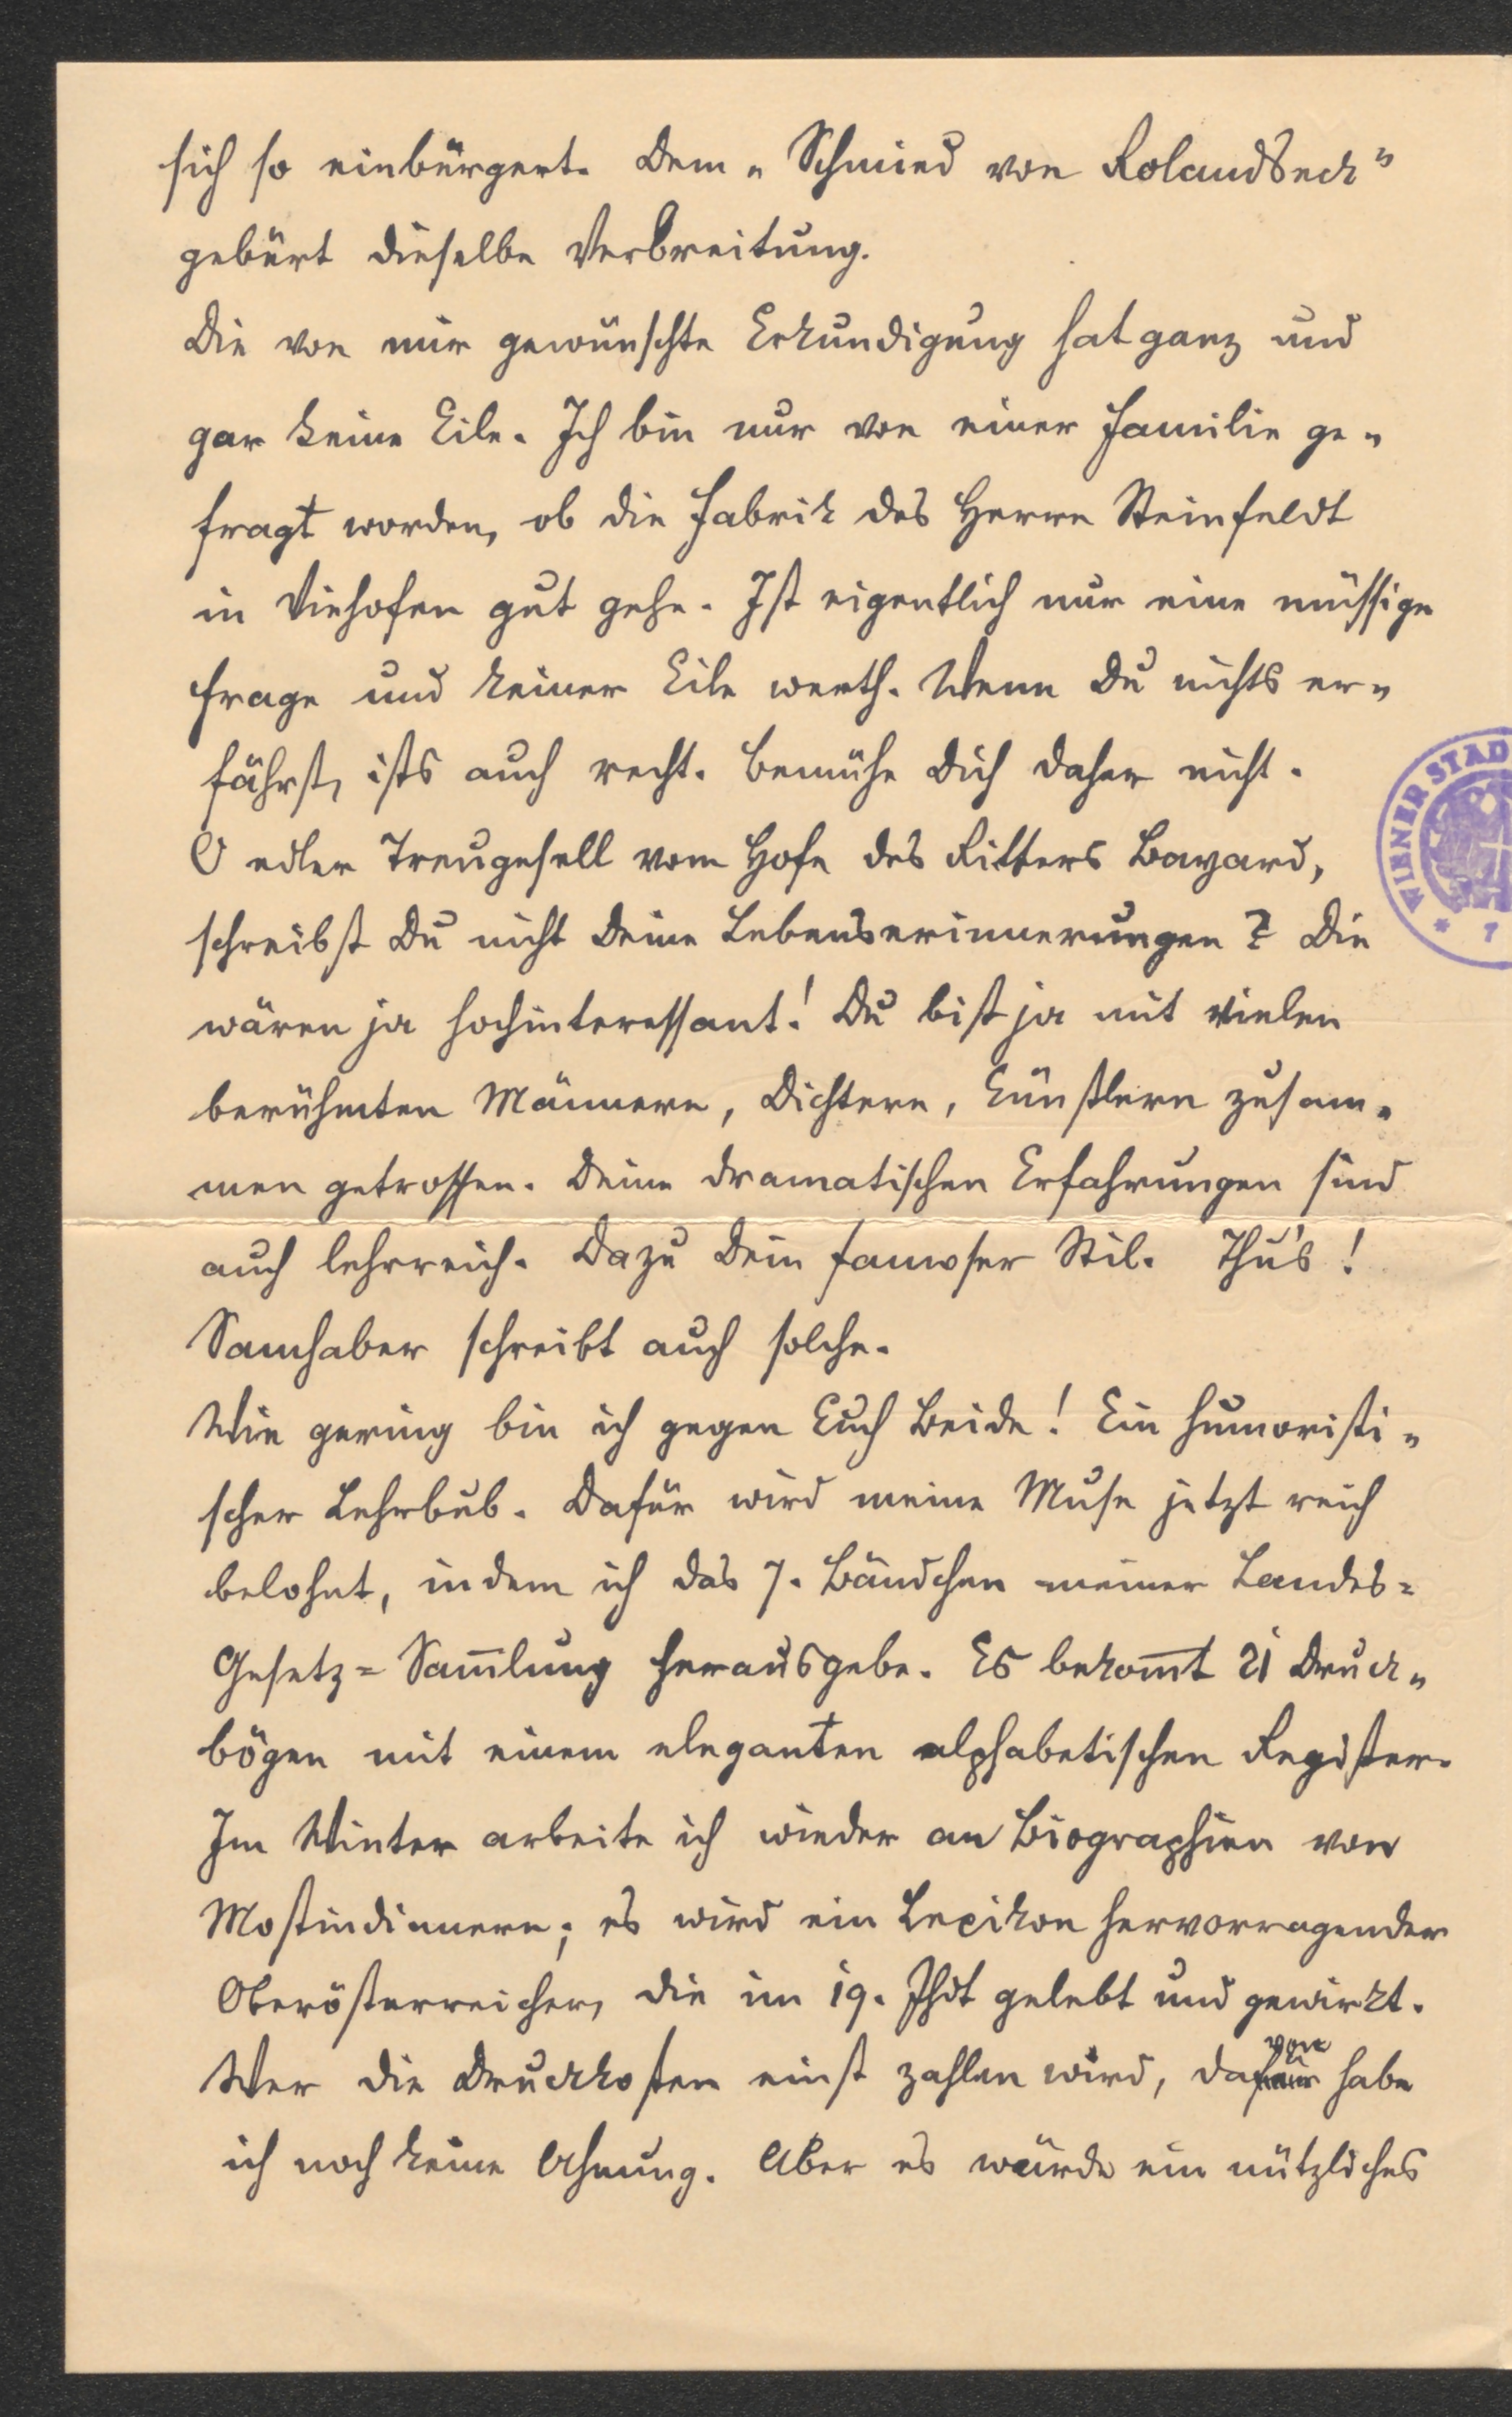 sich so einbürgert. Dem „Schmied von Rolandseck"
gebürt dieselbe Verbreitung.
Die von mir gewünschte Erkundigung hat ganz und
gar keine Eile. Ich bin nur von einer Familie ge„
fragt worden, ob die Fabrik des Herrn Steinfeldt
in Viehofen gut gehe. Ist eigentlich nur eine müssige
Frage und keiner Eile werth. Wenn Du nichts er„
fährst, ists auch recht. Bemühe Dich daher nicht.
O edler Treugesell vom Hofe des Ritters Bayard,
schreibst Du nicht Deine Lebenserinnerungen? Die
wären ja hochinteressant! Du bist ja mit vielen
berühmten Männern, Dichtern, Künstlern zusam„
men getroffen. Deine dramatischen Erfahrungen sind
auch lehrreich. Dazu Dein famoser Stil. Thu's!
Samhaber schreibt auch solche.
Wie gering bin ich gegen Euch Beide! Ein humoristi„
scher Lehrbub. Dafür wird meine Muse jetzt reich
belohnt, indem ich das 7. Bändchen meiner Landes=
Gesetz=Sam̄lung herausgebe. Es bekom̄t 21 Druck„
bögen mit einem eleganten alphabetischen Register.
Im Winter arbeite ich wieder an Biographien von
Mostindianern; es wird ein Lexikon hervorragender
Oberösterreicher, die im 19. Jhdt gelebt und gewirkt.
Wer die Druckkosten einst zahlen wird, davon habe
ich noch keine Ahnung. Aber es würde ein nützliches
WIENER STAD
* 7